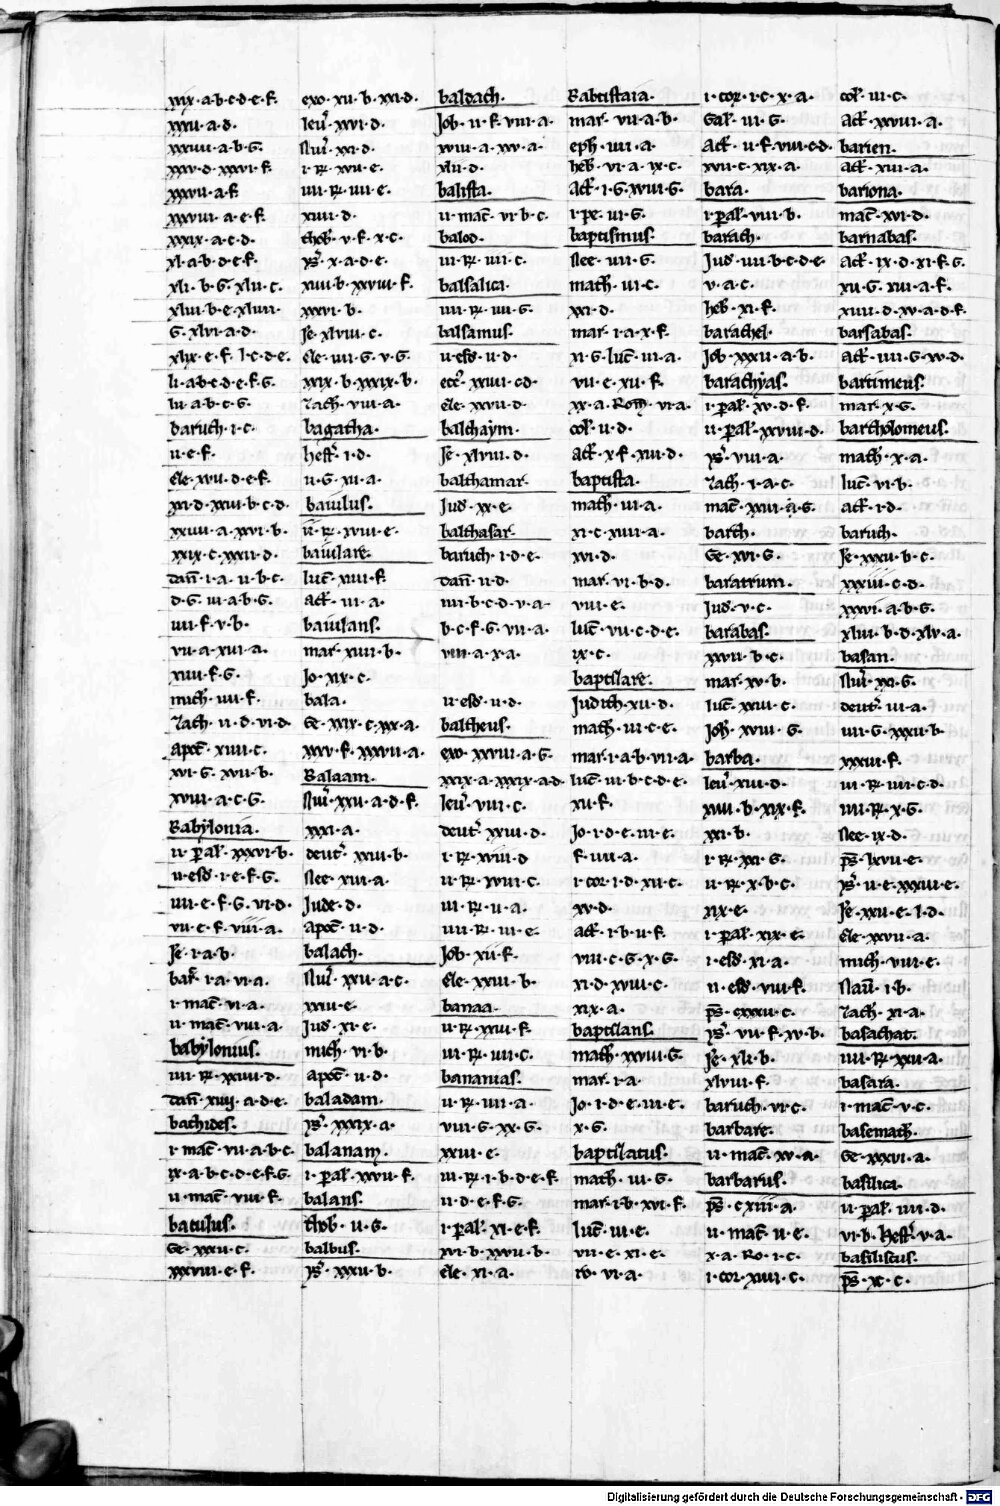 xxix·a·b·c·d·e·f·
xxxii·a·d·
xxxiiii·a·b·G·
xxxv·d·xxxvi·f·
xxxvii·a·f·
xxxviii·a·e·f·
xxxix·a·c·d·
xl·a·b·d·e·f·
xli·b·G·xlii·c·
xliii·b·e·xliiii·
G·xlvi·a·d·
xlix·e·f·l·c·d·e·
li·a·b·c·d·e·f·g·
lii·a·b·c·G·
baruch·i·c·
ii·e·f·
Eze·xvii·d·e·f·
xxi·d·xxiii·b·c·d·
xxiiii·a·xxvi·b·
xxix·c·xxxii·d·
dan̄·i·a·ii·b·c·
d·G·iii·a·b·G·
iiii·f·v·b·
vii·a·xvi·a·
xiiii·f·G·
mich·iiii·f·
zach·ii·d·vi·d·
apoc̄·xiiii·c·
xvi·G·xvii·b·
xviii·a·c·G·
Babÿlonia·
ii·p̄al·xxxvi·b·
ii·esd·i·e·f·G·
iiii·e·f·G·vi·d·
vii·e·f·viii·a·
Je·i·a·b·
bar̄·i·a·vi·a·
i·mac̄·vi·a·
ii·mac̄·viii·a·
babÿlonius·
iiii·R·xxiiii·d·
dan̄·xiiij·a·d·e·
bachides·
i·mac̄·vii·a·b·c·
ix·a·b·c·d·e·f·G·
ii·mac̄·viii·f·
baculus·
Ge·xxxii·c·
xxxviii·e·f·
exo·xii·b·xxi·d·
leu·xxvi·d·
Nu·xxi·d·
i·R·xvii·e·
iiii·R·iiii·e·
xiiii·d·
thob·v·f·x·c·
ys·x·a·d·e·
xiii·b·xxviii·f·
xxxvi·b·
Je·xlviii·c·
Eze·iiii·G·v·G·
xxix·b·xxxix·b·
zach·viii·a·
bagatha·
hest·i·d·
ii·G·xii·a·
baiulus·
ii·R·xviii·e·
baiulare·
luc̄·xiiii·f·
act·iii·a·
baiulans·
mar·xiiii·b·
Jo·xix·c·
bala·
Ge·xxix·c·xxx·a·
xxxv·f·xxxvii·a·
Balaam·
Nu·xxv·a·d·f·
xxxi·a·
deut·xxiii·b·
Nee·xiii·a·
Jude·d·
apoc̄·ii·d·
balach·
Nu·xxii·a·c·
xxiii·e·
Jud·xi·e·
mich·vi·b·
apoc̄·ii·d·
baladam·
ys·xxxix·a·
balanam·
i·p̄al·xxvii·f·
balans·
thob·ii·G·
balbus·
ys·xxxii·b·
baldach·
Job·ii·f·viii·a·
xviii·a·xv·a·
xlii·d·
balista·
ii·mac̄·vi·b·c·
balod·
iii·R·iiii·c·
balsalica·
iiii·R·iiii·G·
balsamus·
ii·esd·ii·d·
ecc·xxiiii·c·d·
Eze·xxvii·d·
balthaÿm·
Je·xlviii·d·
balthamar·
Jud·xx·e·
balthasar·
baruch·i·d·e·
dan̄·ii·d·
iiii·b·c·d·v·a·
b·c·f·G·vii·a·
viii·a·x·a·
ii·esd·ii·d·
baltheus·
exo·xxviii·a·G·
xxix·a·xxxix·a·d·
leu·viii·c·
deut·xxiii·d·
i·R·xviii·d
ii·R·xviii·c·
iii·R·ii·a·
iiii·R·iii·e·
Job·xii·f·
Eze·xxiii·b·
banaa·
ii·R·xxiii·f·
iii·R·iiii·c·
bananias·
ii·R·iiii·a·
viii·G·xx·G·
xxiii·e·
iii·R·i·b·d·e·f·
ii·d·e·f·G·
i·p̄al·xi·e·f·
xvi·b·xxvii·b·
Eze·xi·a·
Babtistaia·
mar·vii·a·b·
eph·iiii·a·
heb·vi·a·ix·c·
act·i·G·xviii·G·
i·pe·iii·G·
baptismus·
Nee·iiii·G·
math·iii·c·
xxi·d·
mar·i·a·x·f·
xi·G·luc̄·iii·a·
vii·e·xii·f·
xx·a·Rom·vi·a·
col·ii·d·
act·x·f·xiii·d·
baptista·
math·iii·a·
xi·c·xiiii·a·
xvi·d·
mar·vi·b·d·
viii·e·
luc̄·vii·c·d·e·
ix·c·
baptisare·
Judith·xii·d·
math·iii·c·e·
mar·i·a·b·vii·a·
luc̄·iii·b·c·d·e·
xii·f·
Jo·i·d·e·iii·e·
f·iiii·a·
i·cor·i·d·xii·c·
xv·d·
act·i·b·ii·f·
viii·c·G·x·G·
xi·d·xviii·c·
xix·a·
baptisans·
math·xxviii·G·
mar·i·a·
Jo·i·d·e·iii·e·
x·G·
baptisatus·
math·iii·G·
mar·i·b·xvi·f·
luc̄·iii·e·
vii·e·xi·e·
ro·vi·a·
i·cor·i·c·x·a·
Gal·iii·G·
act·ii·f·viii·c·d·
xvii·c·xix·a·
bara·
i·p̄al·viii·b·
barach·
Jud·iiii·b·c·d·e
v·a·c·
heb·xi·f·
barachel·
Job·xxxii·a·b·
barachÿas·
i·p̄al·xv·d·f·
ii·p̄al·xxviii·d·
ys·viii·a·
zach·i·a·c·
mac̄·xxiii·a·G·
barch·
Ge·xvi·G·
baratrum·
Jud·v·c·
barabas·
xxvii·b·c·
mar·xv·b·
luc̄·xxiii·c·
Joh·xviii·G·
barba·
leu·xiii·d·
xiiii·b·xix·f·
xxi·b·
i·R·xxi·G·
ii·R·x·b·c·
xix·e·
i·p̄al·xix·e·
i·esd·xi·a·
ii·esd·viii·f·
ps̄·cxxxii·c·
ys·vii·f·xv·b·
Je·xli·b·
xlviii·f·
baruch·vi·c·
barbare·
ii·mac̄·xv·a·
barbarus·
ps̄·cxiii·a·
ii·mac̄·ii·e·
x·a·Ro·i·c·
i·cor·xiiii·c·
col·iii·c·
act·xxviii·a·
barien·
act·xiii·a·
bariona·
mac̄·xvi·d·
barnabas·
act·ix·d·xi·f·G·
xii·G·xiii·a·f·
xiiii·d·xv·a·d·f·
barsabas·
act·iiii·G·xv·d·
bartimeus·
mar·x·G·
bartholomeus·
math·x·a·
luc̄·vi·b·
act·i·d·
baruch·
Je·xxxii·b·c·
xxxiii·c·d·
xxxvi·a·b·G·
xliii·b·d·xlv·a·
basan·
Nu·xxi·G·
deut·iii·a·
iiii·G·xxxii·b·
xxxiii·f·
iii·R·iiii·c·d·
iiii·R·x·G·
Nee·ix·d·
ps̄·lxvii·e·
ys·ii·e·xxxiii·e·
Je·xxii·e·l·d·
Eze·xxvii·a·
mich·viii·e·
Nau·i·b·
zach·xi·a·
basachat·
iiii·R·xxii·a·
basara·
i·mac̄·v·c·
basemach·
Ge·xxxvi·a·
basilica·
ii·p̄al·iiii·d·
vi·b·Hest·v·a·
basiliscus·
ps̄·xc·c·
Digitalisierung gefördert durch die Deutsche Forschungsgemeinschaft - DFG